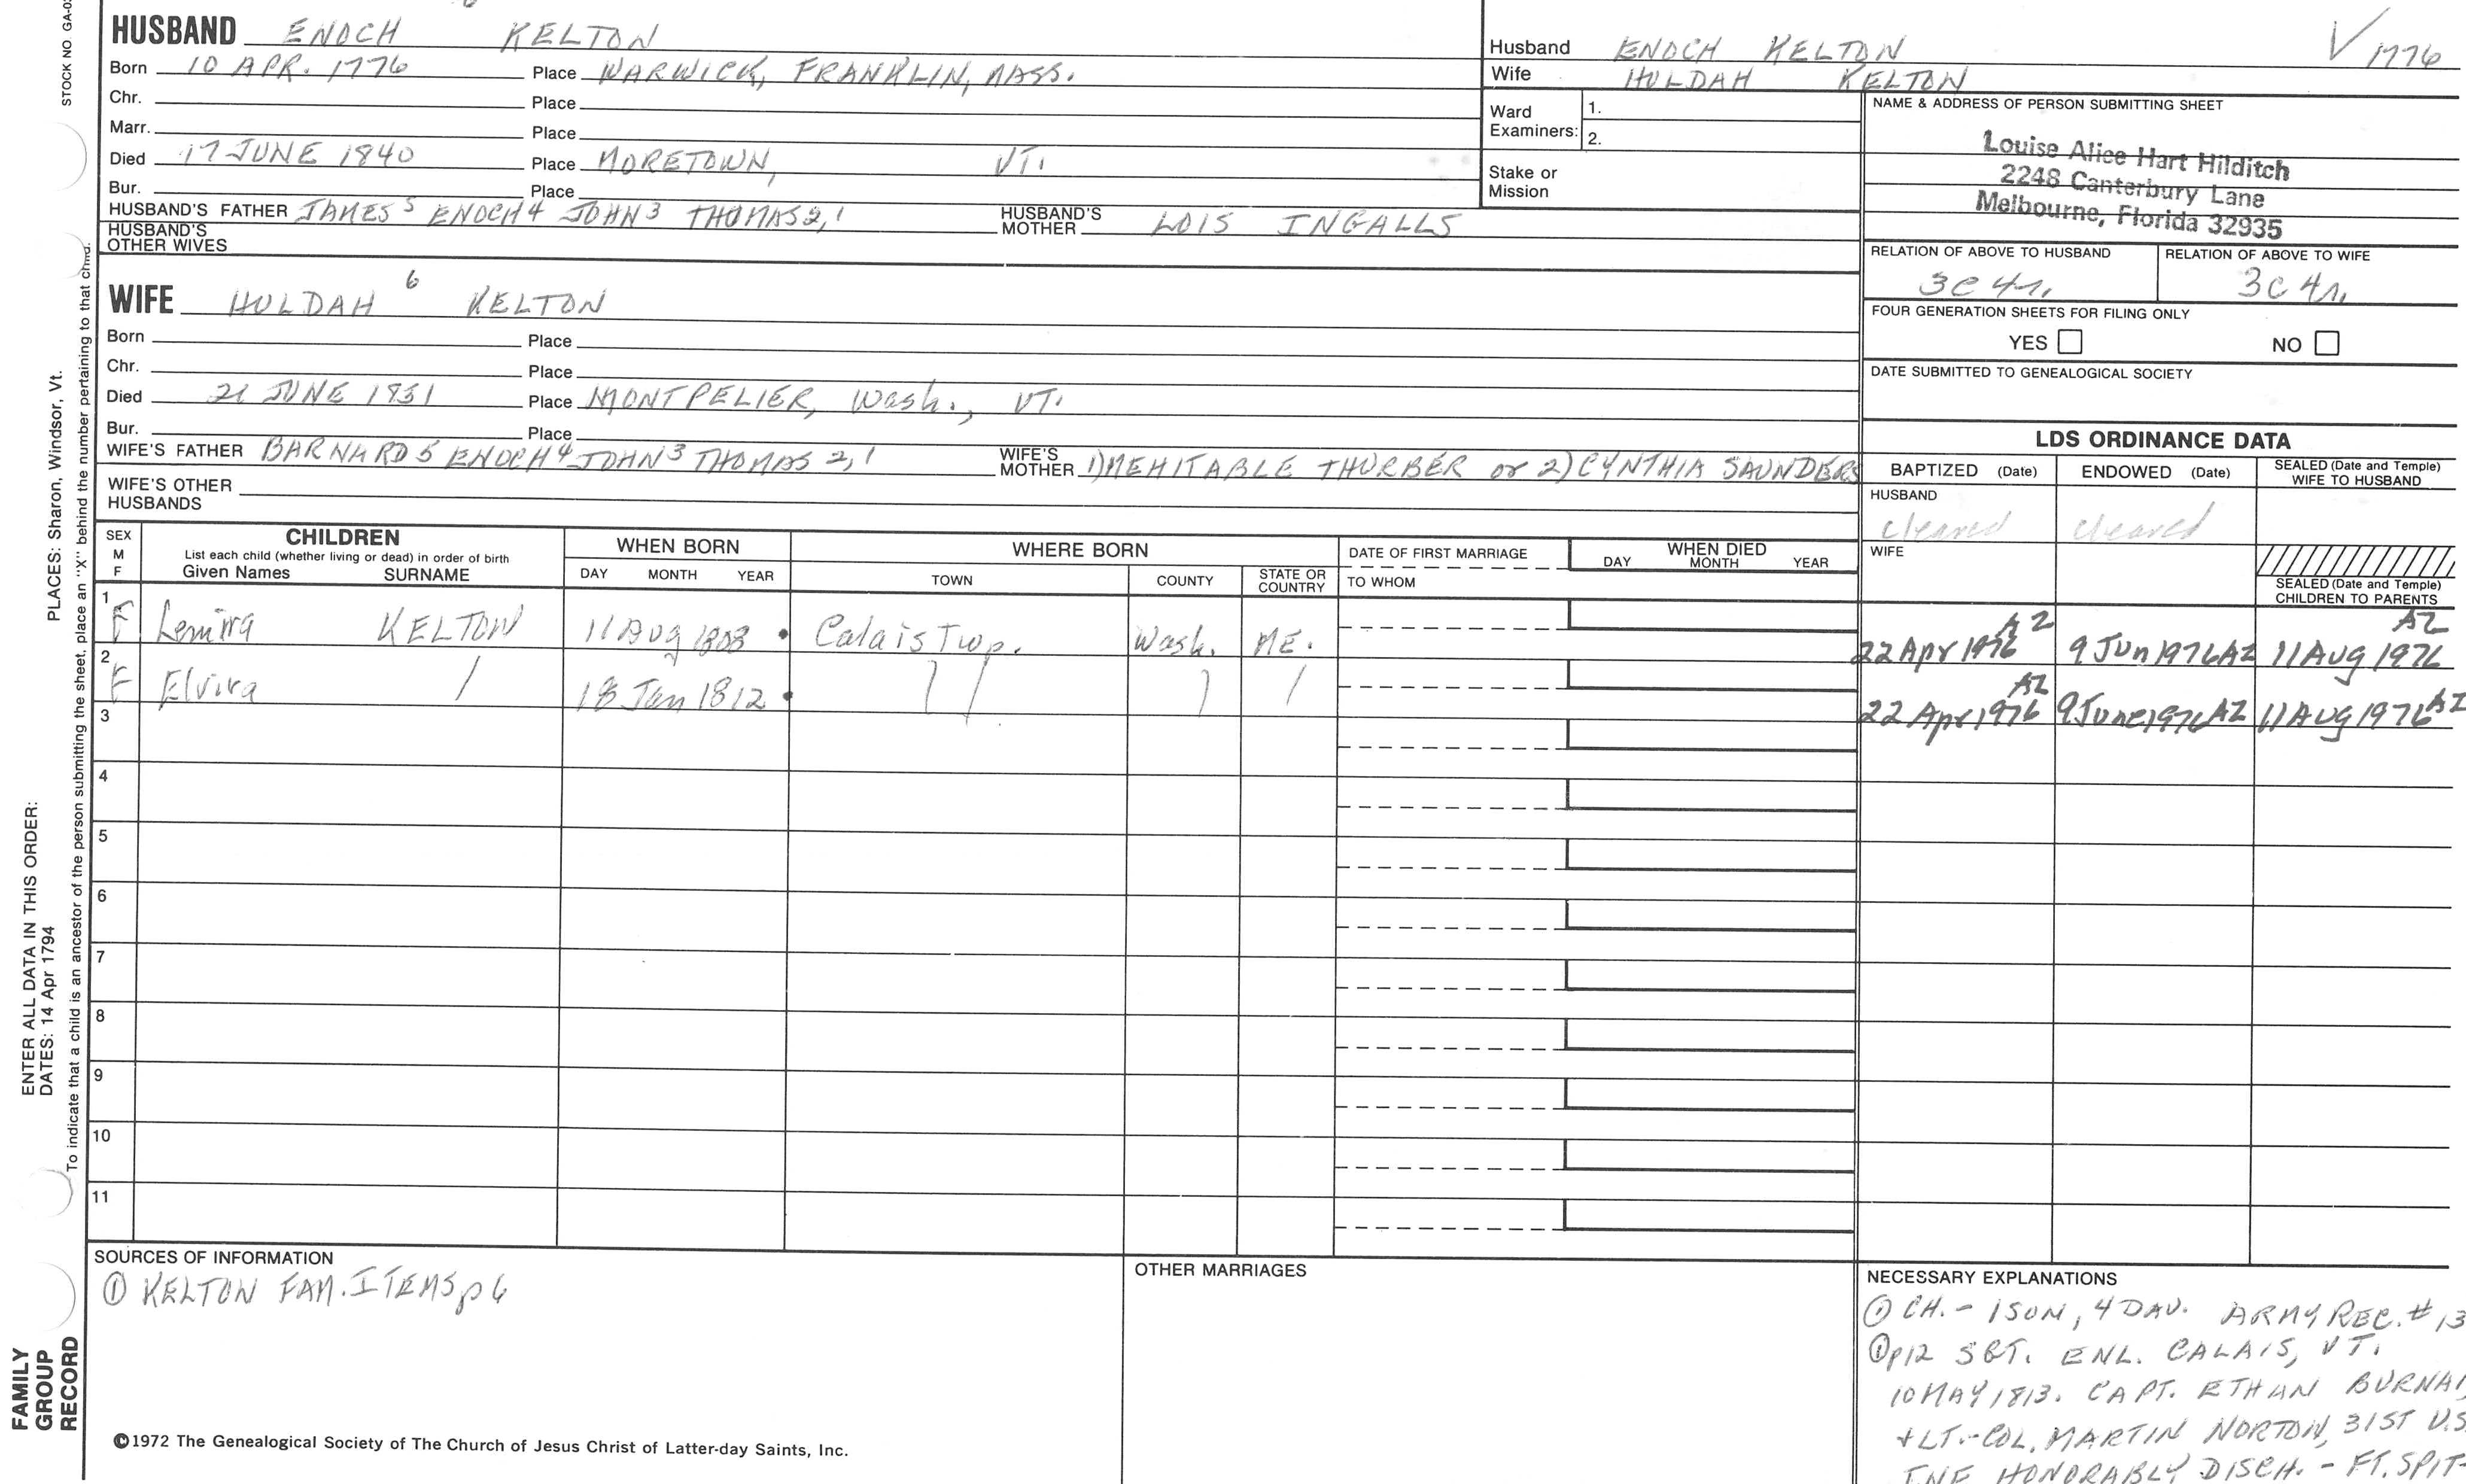 HUSBAND ENOCH KELTON
Born 10 APR. 1776 Place WARWICK, FRANKLIN, MASS.
Chr. Place
Marr. Place
Died 17 JUNE 1840 Place MORETOWN, VT.
Bur. Place
HUSBAND'S FATHER JAMES 5 ENOCH 4 JOHN 3 THOMAS 2, 1 HUSBAND'S MOTHER LOIS INGALLS
HUSBAND'S OTHER WIVES
WIFE HULDAH 6 KELTON
Born Place
Chr. Place
Died 21 JUNE 1831 Place MONTPELIER, Wash., VT.
Bur. Place
WIFE'S FATHER BARNARD 5 ENOCH 4 JOHN 3 THOMAS 2, 1 WIFE'S MOTHER 1) MEHITABLE THURBER or 2) CYNTHIA SAUNDERS
WIFE'S OTHER HUSBANDS
Husband ENOCH KELTON V 1776
Wife HULDAH KELTON
Ward Examiners: 1.
2.
Stake or Mission
NAME & ADDRESS OF PERSON SUBMITTING SHEET
Louise Alice Hart Hilditch
2248 Canterbury Lane
Melbourne, Florida 32935
RELATION OF ABOVE TO HUSBAND RELATION OF ABOVE TO WIFE
3C 4r. 3C 4r.
FOUR GENERATION SHEETS FOR FILING ONLY
YES NO
DATE SUBMITTED TO GENEALOGICAL SOCIETY
LDS ORDINANCE DATA
BAPTIZED (Date) ENDOWED (Date) SEALED (Date and Temple) WIFE TO HUSBAND
HUSBAND
cleared cleared
WIFE
SEALED (Date and Temple) CHILDREN TO PARENTS
SEX M F
CHILDREN
List each child (whether living or dead) in order of birth
Given Names SURNAME
WHEN BORN
DAY MONTH YEAR
WHERE BORN
TOWN COUNTY STATE OR COUNTRY
DATE OF FIRST MARRIAGE
TO WHOM
WHEN DIED
DAY MONTH YEAR
1 F Lemira KELTON 11 Aug 1808 Calais Twp. Wash. ME. 22 Apr 1976 AZ 9 Jun 1976 AZ 11 Aug 1976 AZ
2 F Elvira / 18 Jan 1812 / / / / 22 Apr 1976 AZ 9 June 1976 AZ 11 Aug 1976 AZ
3
4
5
6
7
8
9
10
11
SOURCES OF INFORMATION
① KELTON FAM. ITEMS p6
OTHER MARRIAGES
NECESSARY EXPLANATIONS
① CH. - 1 SON, 4 DAU. ARMY REC. # 13
① p12 SGT. ENL. CALAIS, VT.
10 MAY 1813. CAPT. ETHAN
+ LT.-COL. MARTIN NORTON, 31ST U.S.
INF HONORABLY DISCH. - FT. SPIT-
©1972 The Genealogical Society of The Church of Jesus Christ of Latter-day Saints, Inc.
STOCK NO GA-0
PLACES: Sharon, Windsor, Vt.
ENTER ALL DATA IN THIS ORDER:
DATES: 14 Apr 1794
To indicate that a child is an ancestor of the person submitting the sheet, place an "X" behind the number pertaining to that child.
FAMILY
GROUP
RECORD